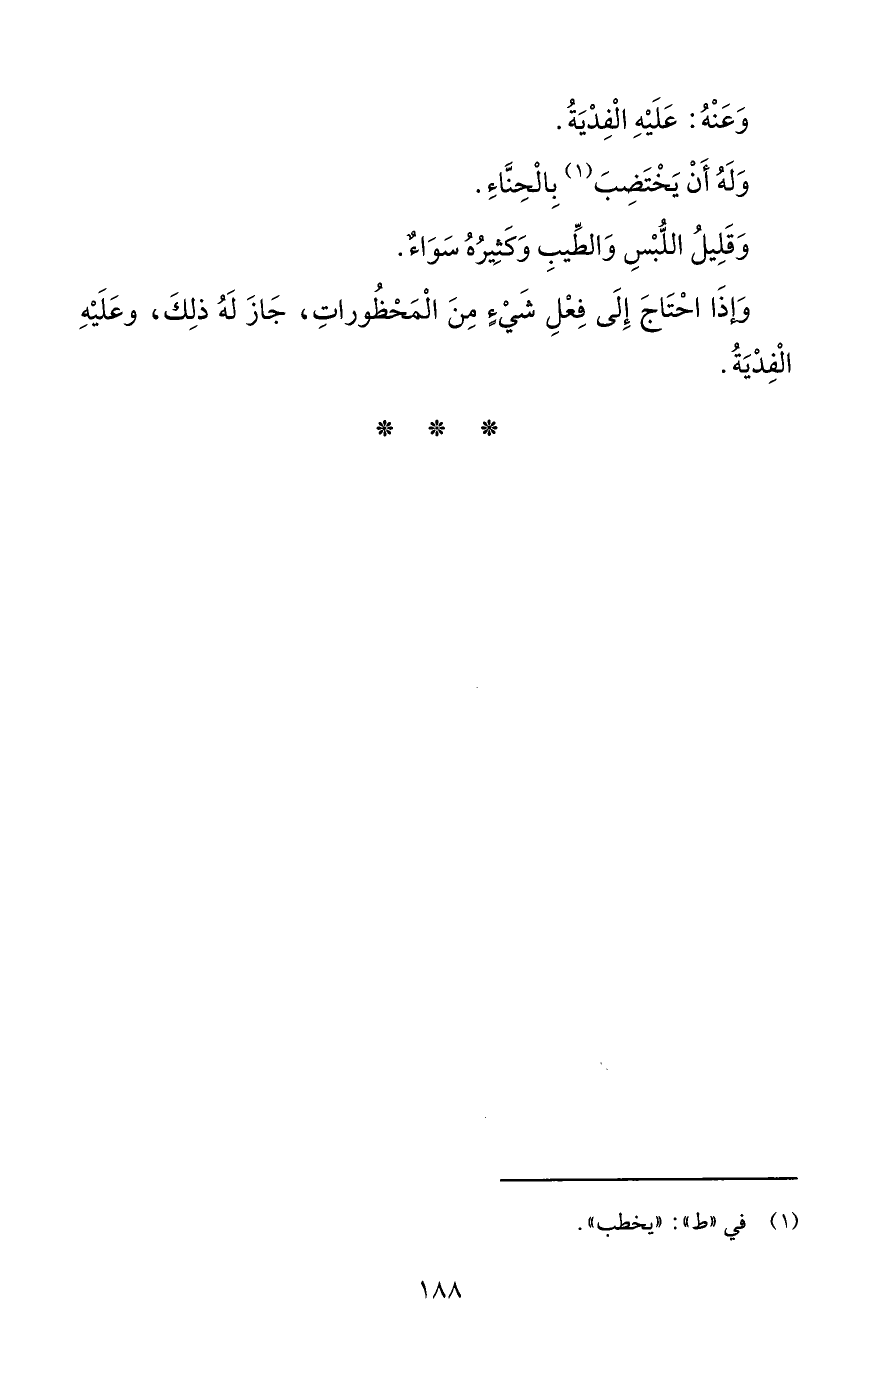 وَعَنْهُ: عَلَيْهِ الْفِدْيَةُ.
وَلَهُ أَنْ يَخْتَضِبَ(١) بِالْحِنَّاءِ.
وَقَلِيلُ اللُّبْسِ وَالطِّيبِ وَكَثِيرُهُ سَوَاءٌ.
وَإِذَا احْتَاجَ إِلَى فِعْلِ شَيْءٍ مِنَ الْمَحْظُوراتِ، جَازَ لَهُ ذلِكَ، وعَلَيْهِ
الْفِدْيَةُ.
* * *
(١) في «ط»: «يخطب».
١٨٨